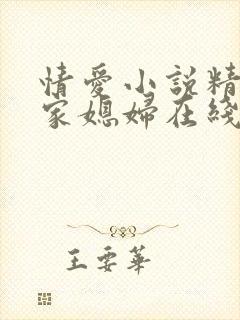 情愛小説精
家媳婦在綫
王要華